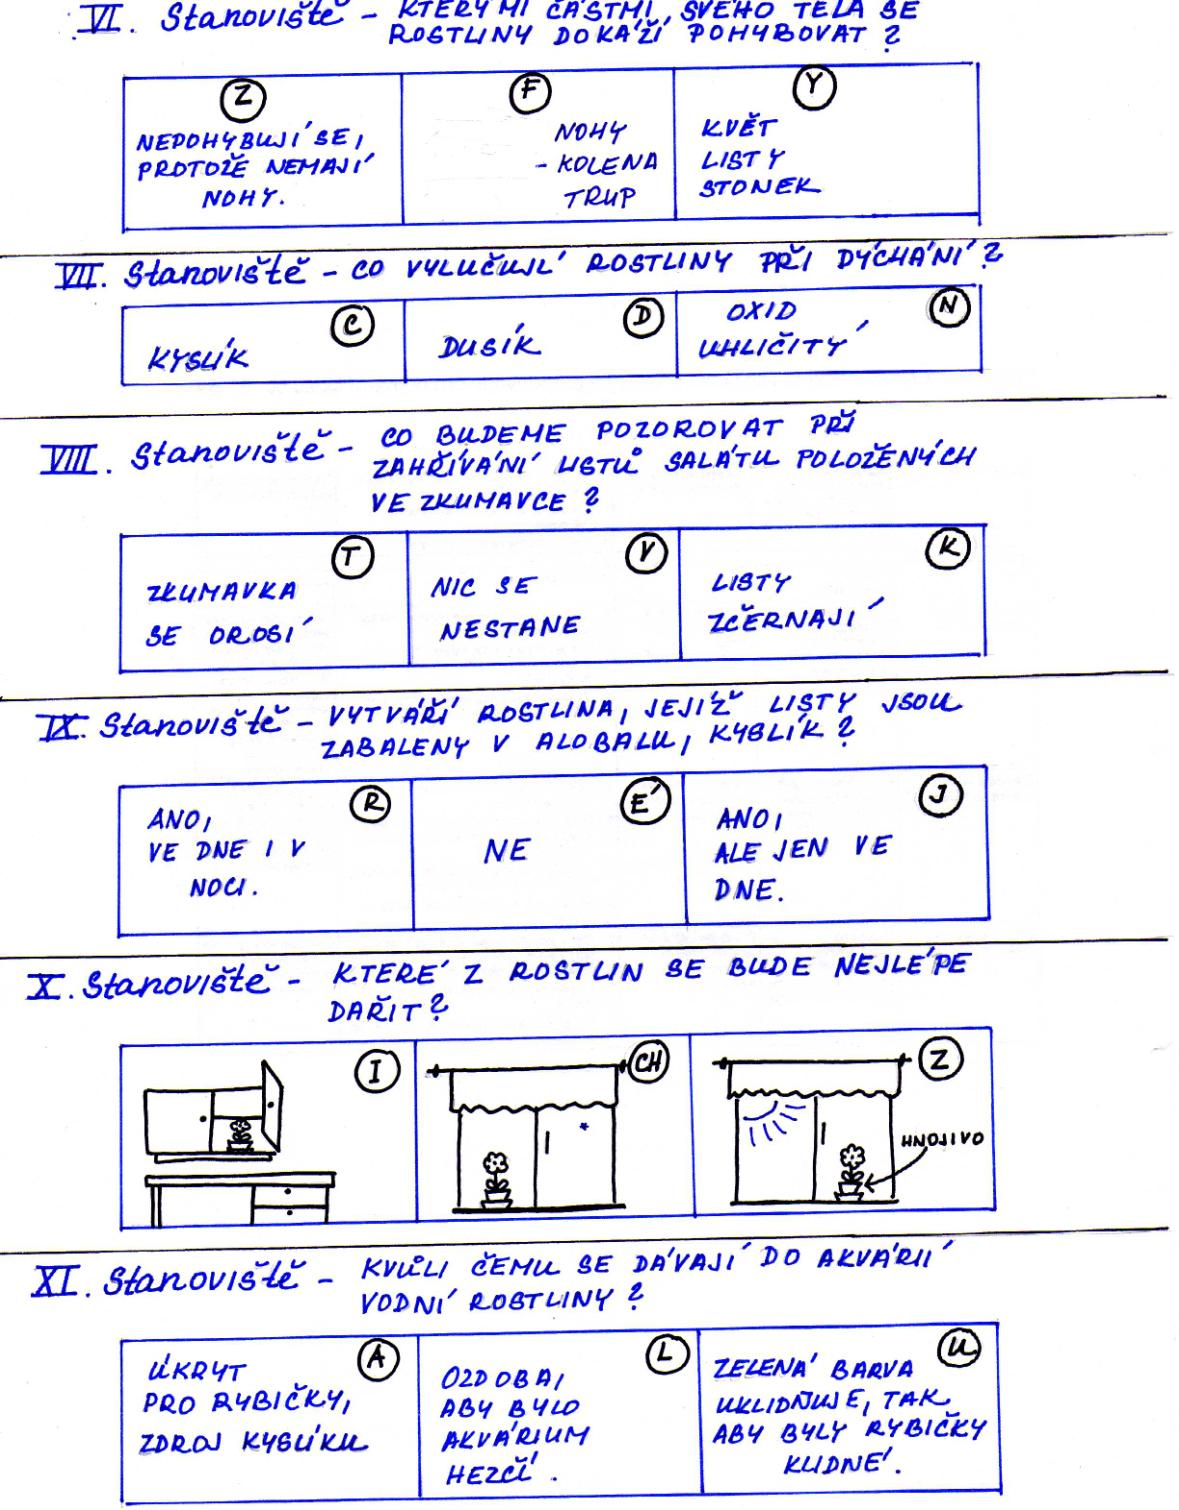 VI. Stanoviště - KTERÝMI ČÁSTMI SVÉHO TĚLA SE
ROSTLINY DOKÁŽÍ POHYBOVAT?
Z
NEPOHYBUJÍ SE,
PROTOŽE NEMAJÍ
NOHY.
F
NOHY
- KOLENA
TRUP
Y
KVĚT
LISTY
STONEK
VII. Stanoviště - CO VYLUČUJÍ ROSTLINY PŘI DÝCHÁNÍ?
C
KYSLÍK
D
DUSÍK
N
OXID
UHLIČITÝ
VIII. Stanoviště - CO BUDEME POZOROVAT PŘI
ZAHŘÍVÁNÍ LISTŮ SALÁTU POLOŽENÝCH
VE ZKUMAVCE?
T
ZKUMAVKA
SE OROSÍ
V
NIC SE
NESTANE
K
LISTY
ZČERNAJÍ
IX. Stanoviště - VYTVÁŘÍ ROSTLINA, JEJÍŽ LISTY JSOU
ZABALENY V ALOBALU, KYSLÍK?
R
ANO,
VE DNE I V
NOCI.
É
NE
J
ANO,
ALE JEN VE
DNE.
X. Stanoviště - KTERÉ Z ROSTLIN SE BUDE NEJLÉPE
DAŘIT?
I
CH
Z
HNOJIVO
XI. Stanoviště - KVŮLI ČEMU SE DÁVAJÍ DO AKVÁRIÍ
VODNÍ ROSTLINY?
A
ÚKRYT
PRO RYBIČKY,
ZDROJ KYSLÍKU
L
OZDOBA,
ABY BYLO
AKVÁRIUM
HEZČÍ.
U
ZELENÁ BARVA
UKLIDŇUJE, TAK
ABY BYLY RYBIČKY
KLIDNÉ.